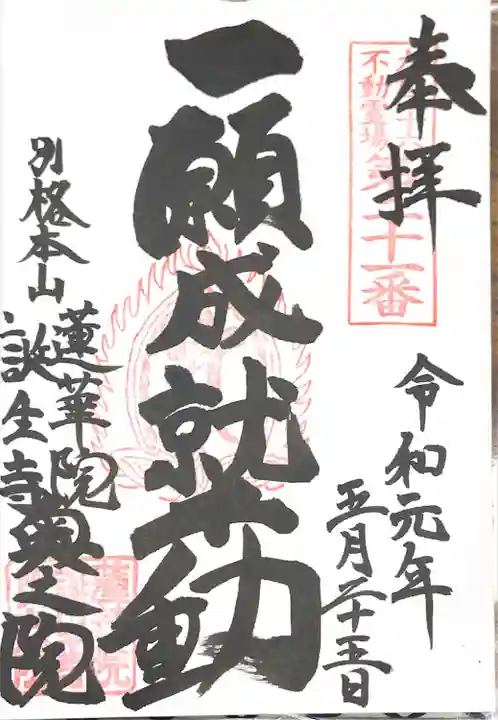 奉拝
不動霊場
第二十一番
令和元年
五月二十五日
一願成就不動
別格本山
蓮華院
誕生寺
奥之院